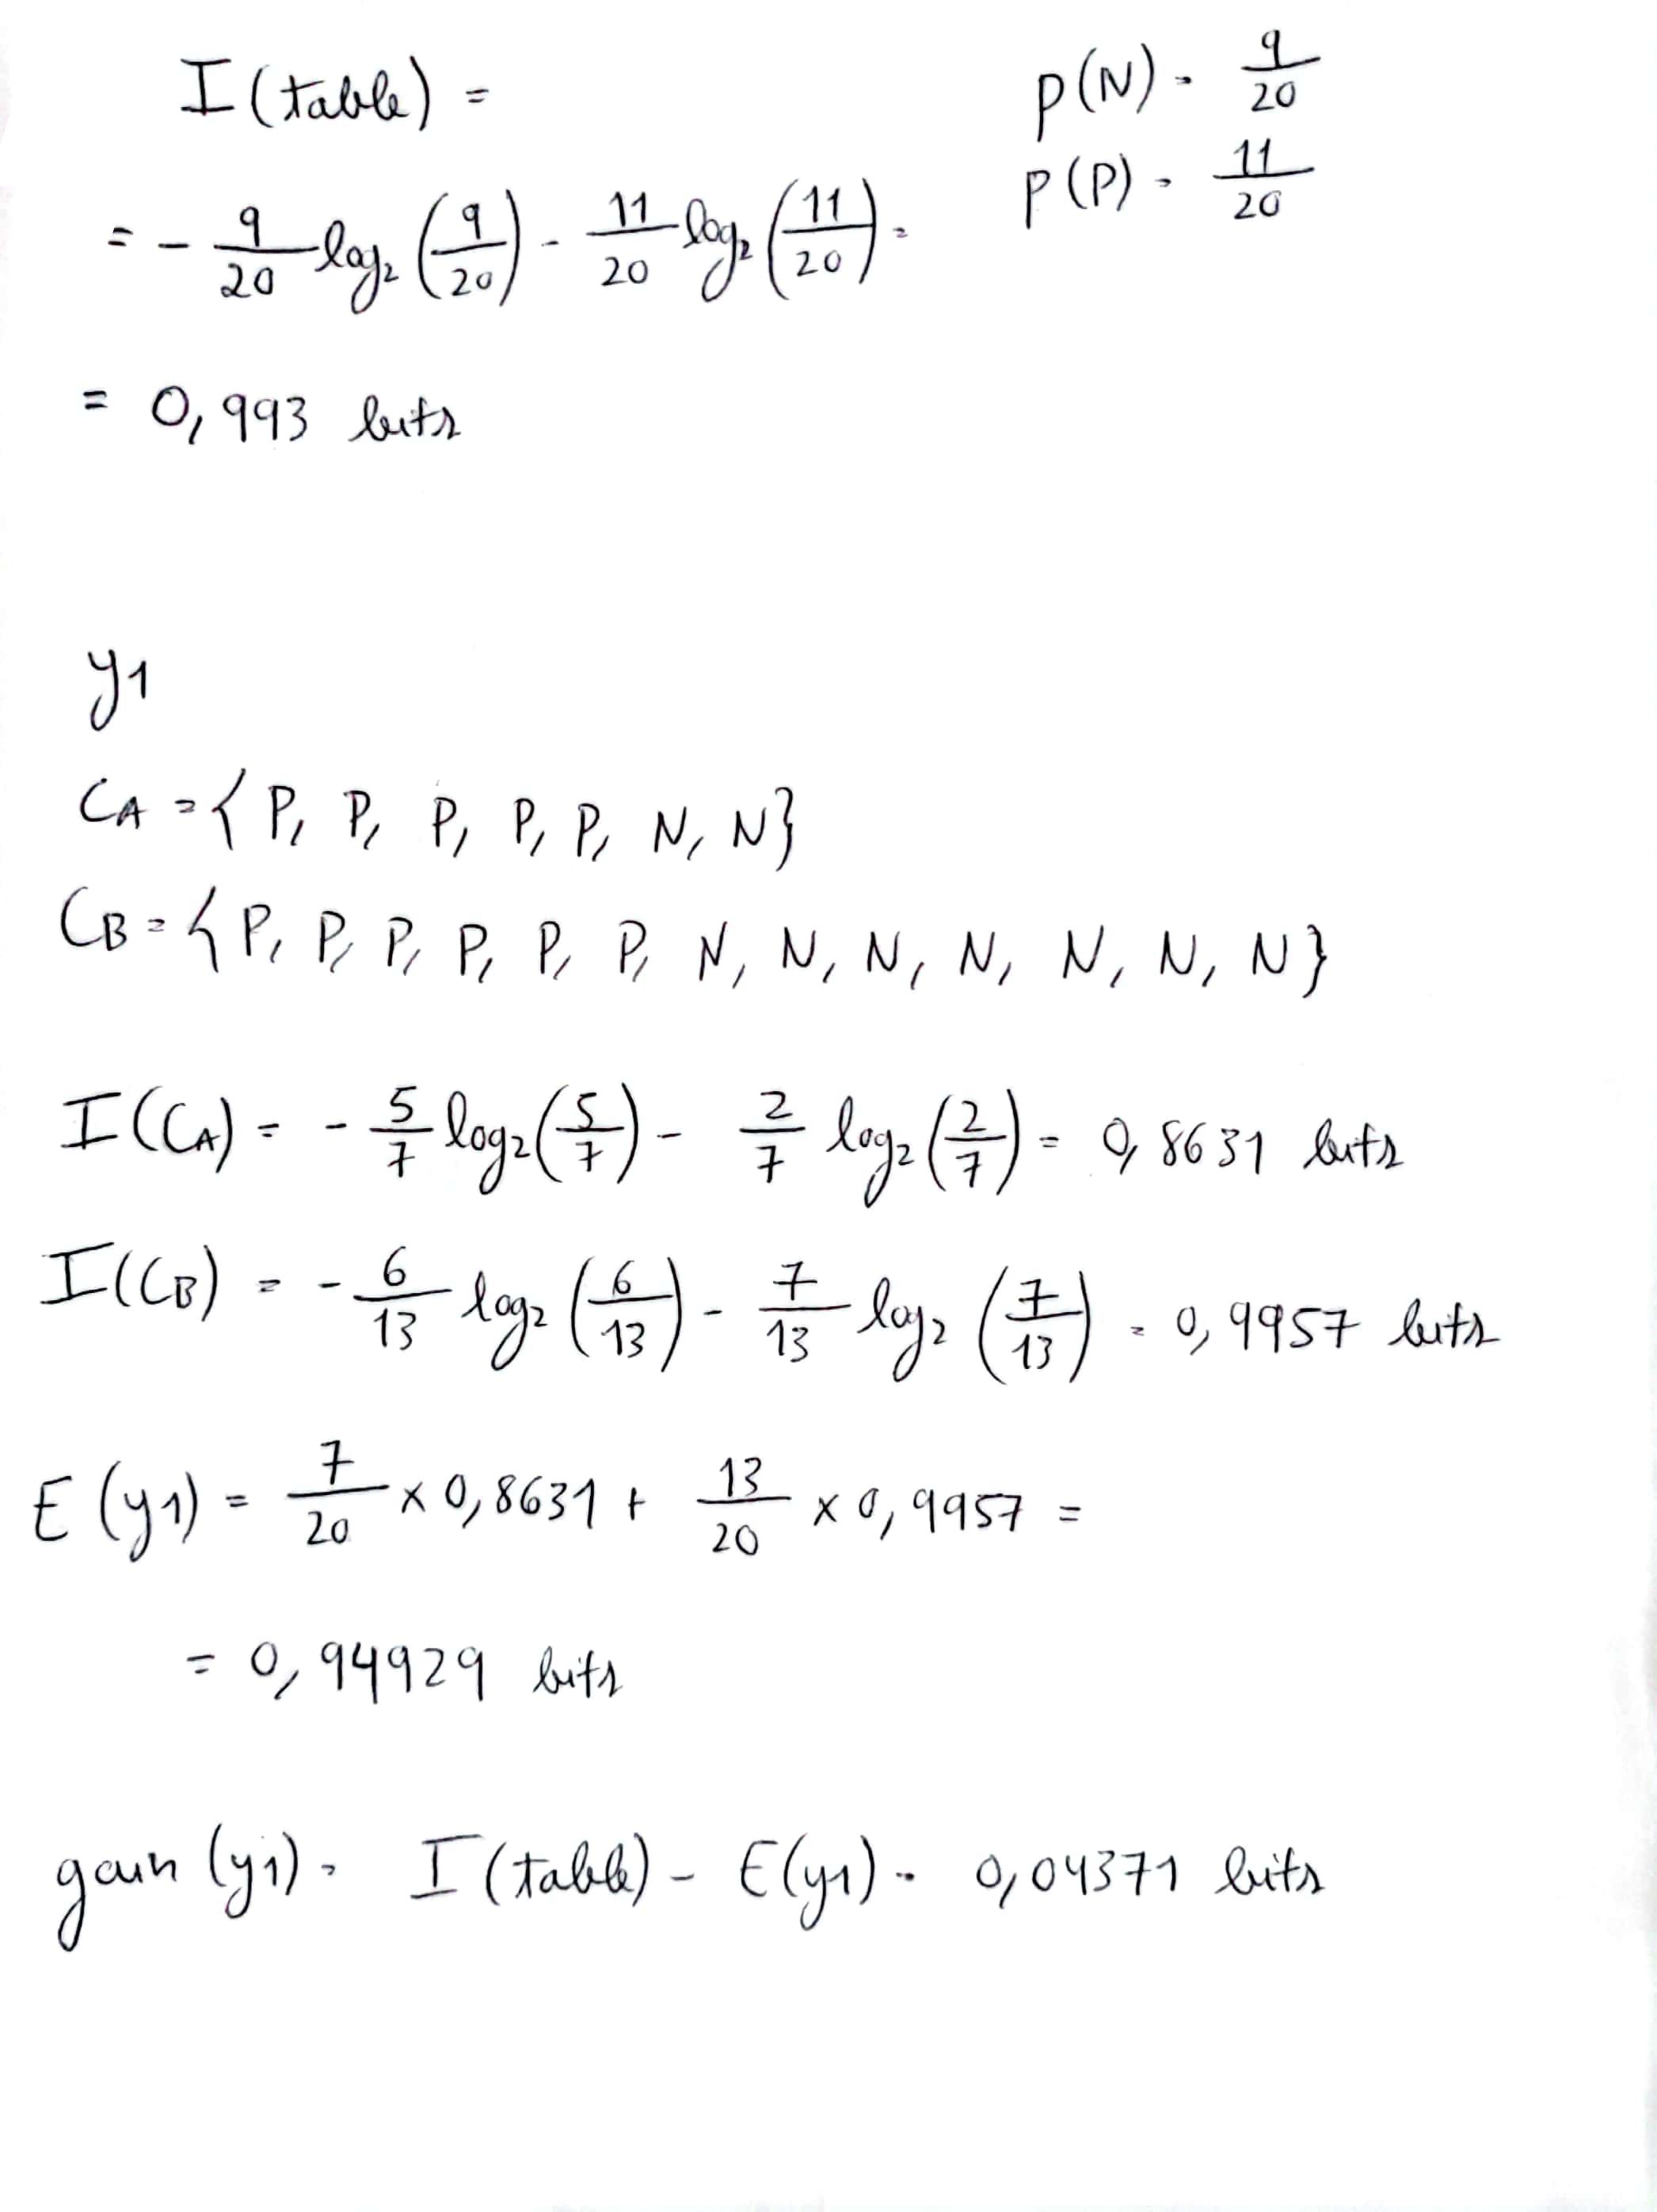 I(table) =
p(N) = 9/20
p(P) = 11/20
= - 9/20 log₂ (9/20) - 11/20 log₂ (11/20) =
= 0,993 bits
y1
CA = {P, P, P, P, P, N, N}
CB = {P, P, P, P, P, P, N, N, N, N, N, N, N}
I(CA) = - 5/7 log₂(5/7) - 2/7 log₂(2/7) = 0,8631 bits
I(CB) = - 6/13 log₂ (6/13) - 7/13 log₂ (7/13) = 0,9957 bits
E (y1) = 7/20 x 0,8631 + 13/20 x 0,9957 =
= 0,94929 bits
gain (y1) = I (table) - E(y1) = 0,04371 bits